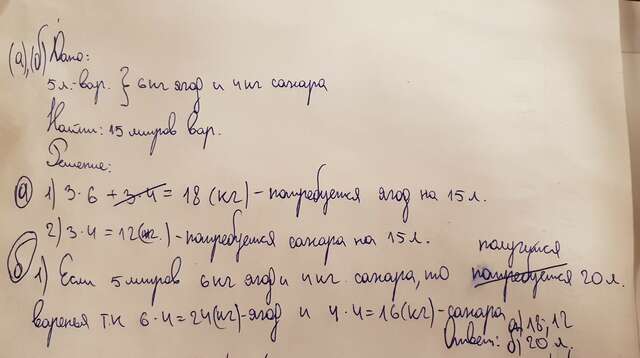 (а),(б) Дано:
5 л.-вар. } 6 кг ягод и 4 кг сахара
Найти: 15 литров вар.
Решение:
а) 1) 3·6 + 3·4 = 18 (кг) - потребуется ягод на 15 л.
2) 3·4 = 12 (кг.) - потребуется сахара на 15 л.
получится
б) 1) Если 5 литров 6 кг ягод и 4 кг. сахара, то потребуется 20 л.
варенья т.к 6·4=24(кг)-ягод и 4·4=16(кг)-сахара
Ответ: а) 18; 12
б) 20 л.